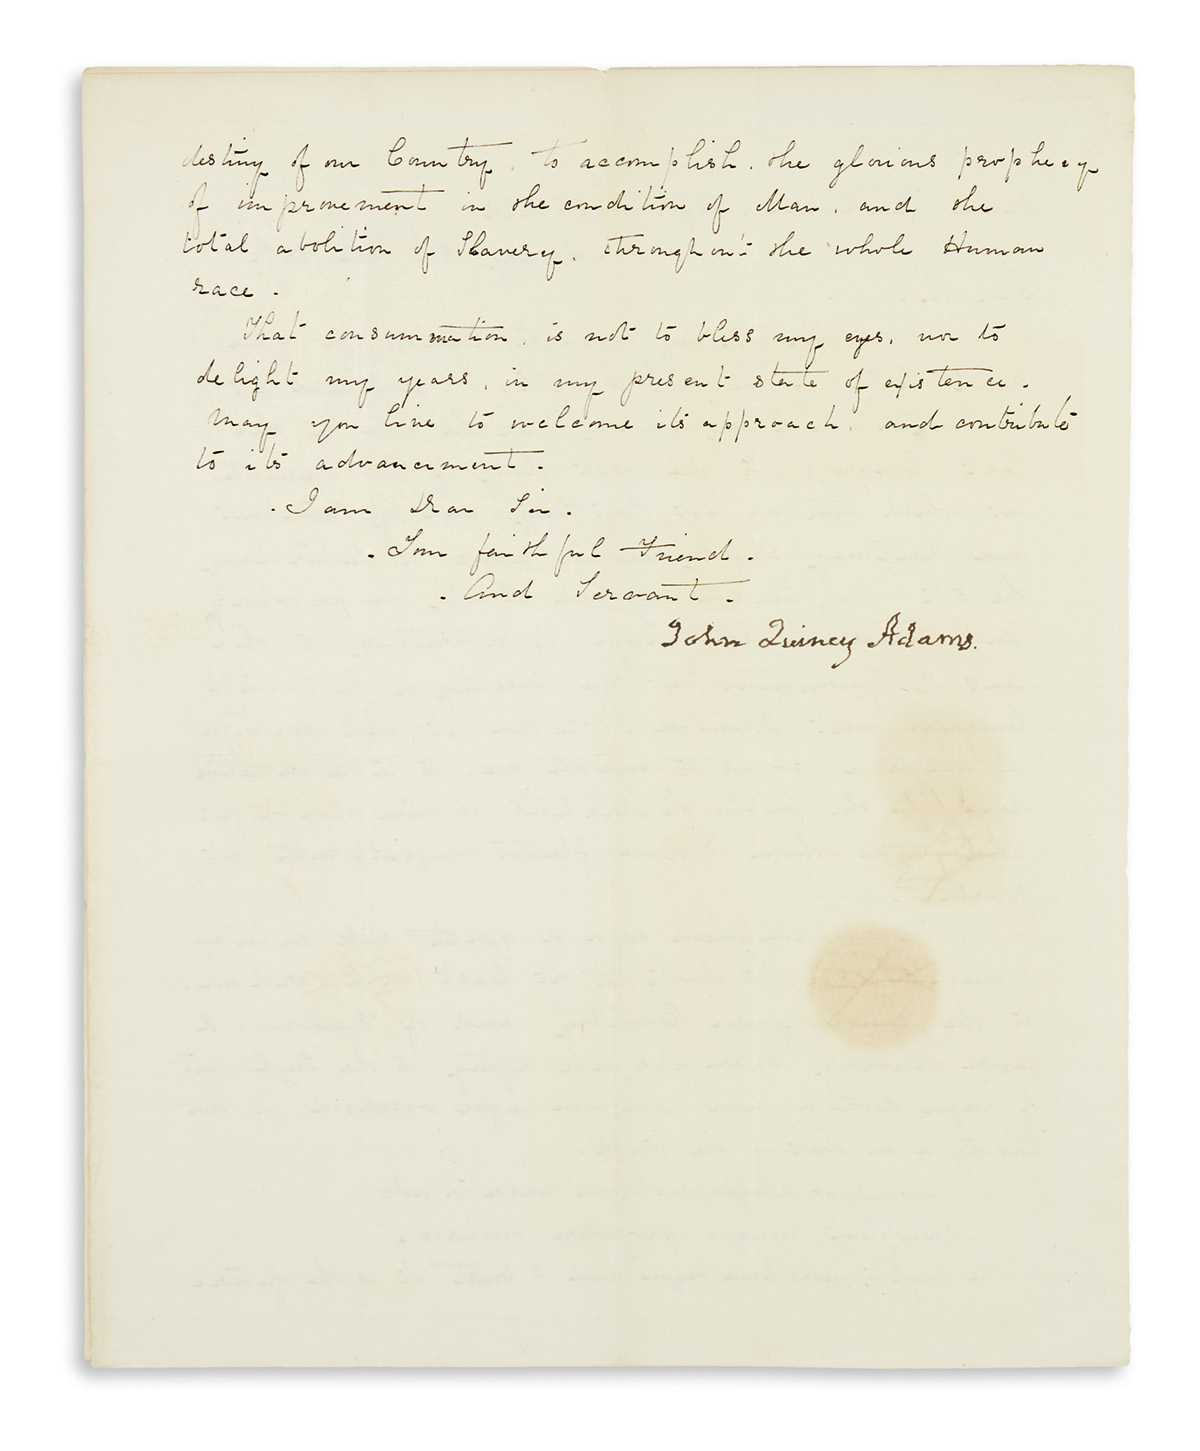 destiny of our Country, to accomplish, the glorious prophecy
of improvement in the condition of Man, and the
total abolition of Slavery, throughout the whole Human
race.
That consummation, is not to bless my eyes, nor to
delight my years, in my present state of existence.
May you live to welcome its approach, and contribute
to its advancement.
. I am Dear Sir.
. Your faithful Friend.
. And Servant.
John Quincy Adams.